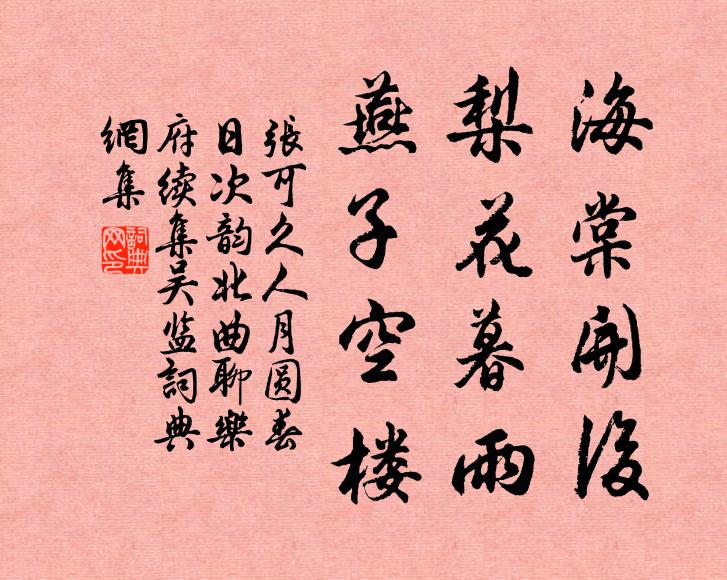 海棠開後
梨花暮雨
燕子空楼
張可久人月圆春
日次韵北曲聊樂
府续集吴监詞典
網集
詞典网印